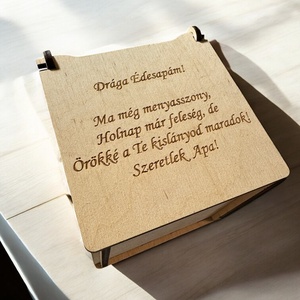 Drága Édesapám!
Ma még menyasszony,
Holnap már feleség, de
Örökké a Te kislányod maradok!
Szeretlek Apa!